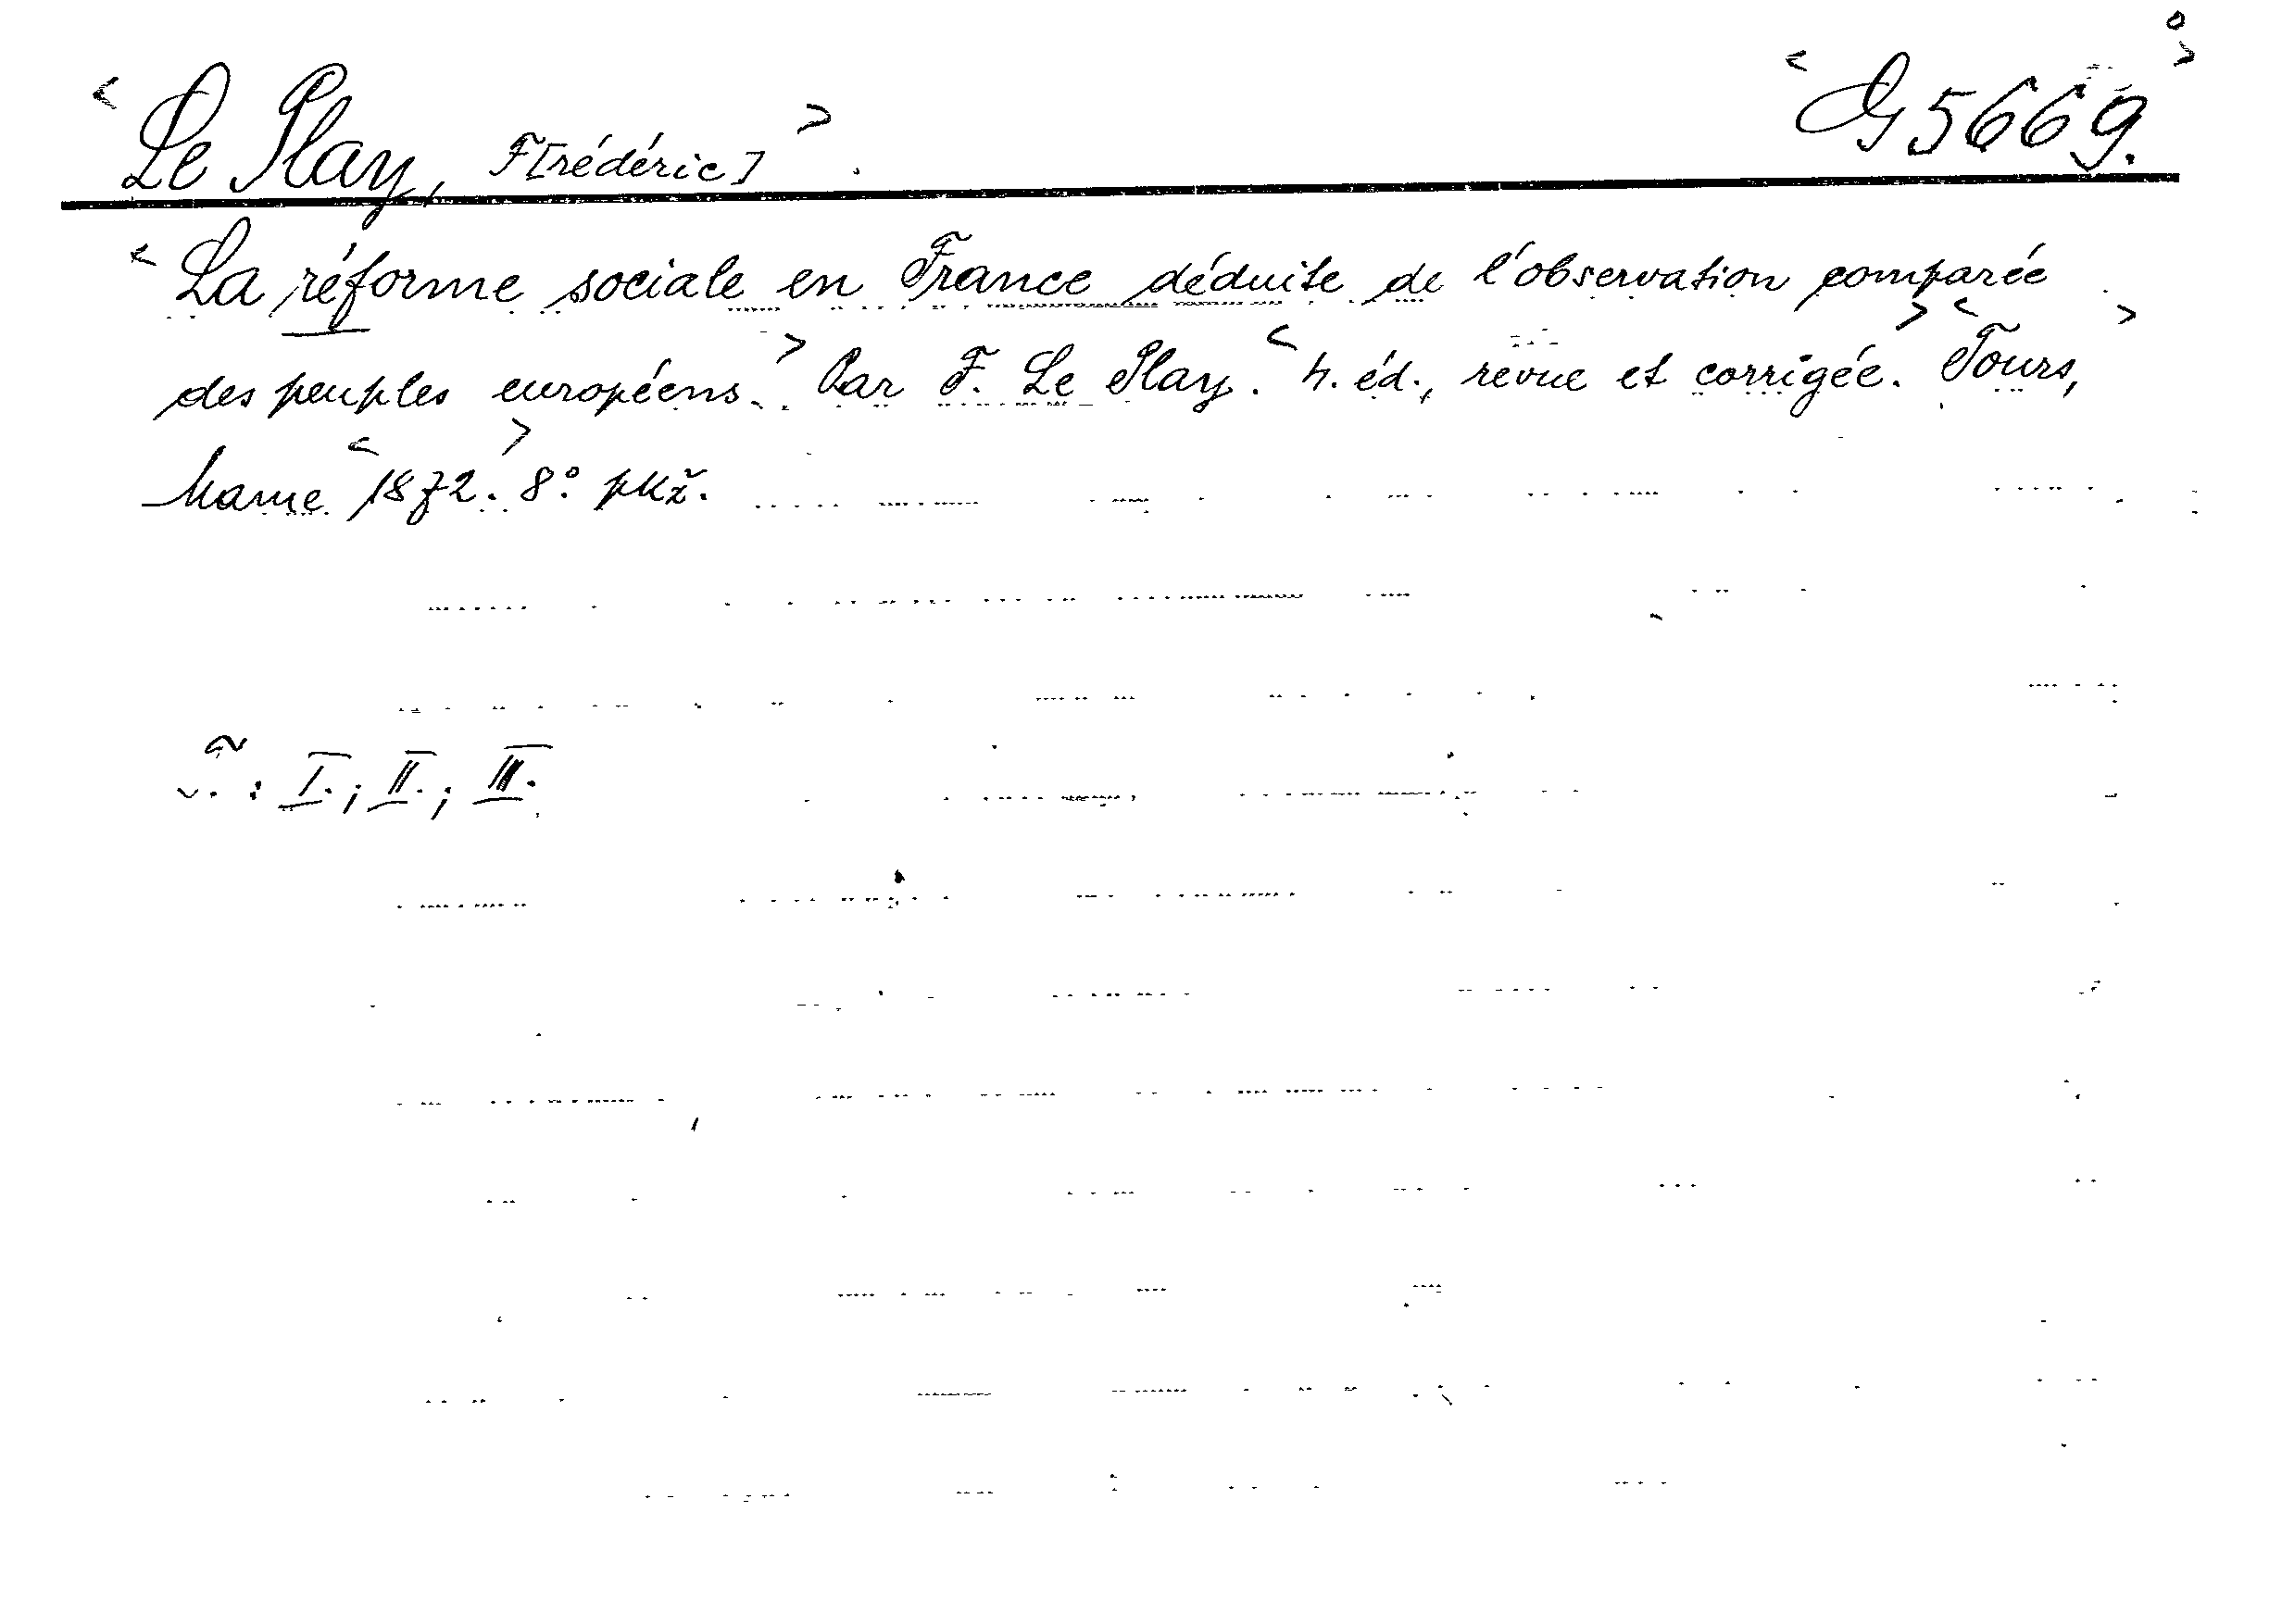 <Le Play, F[rédéric]>. <G 5669.>
<La réforme sociale en France déduite de l'observation comparée
des peuples européens.> Par F. Le Play. <4. éd., revue et corrigée.> <Tours,>
Mame <1872.> 8° pkž.
I.; II.; III.